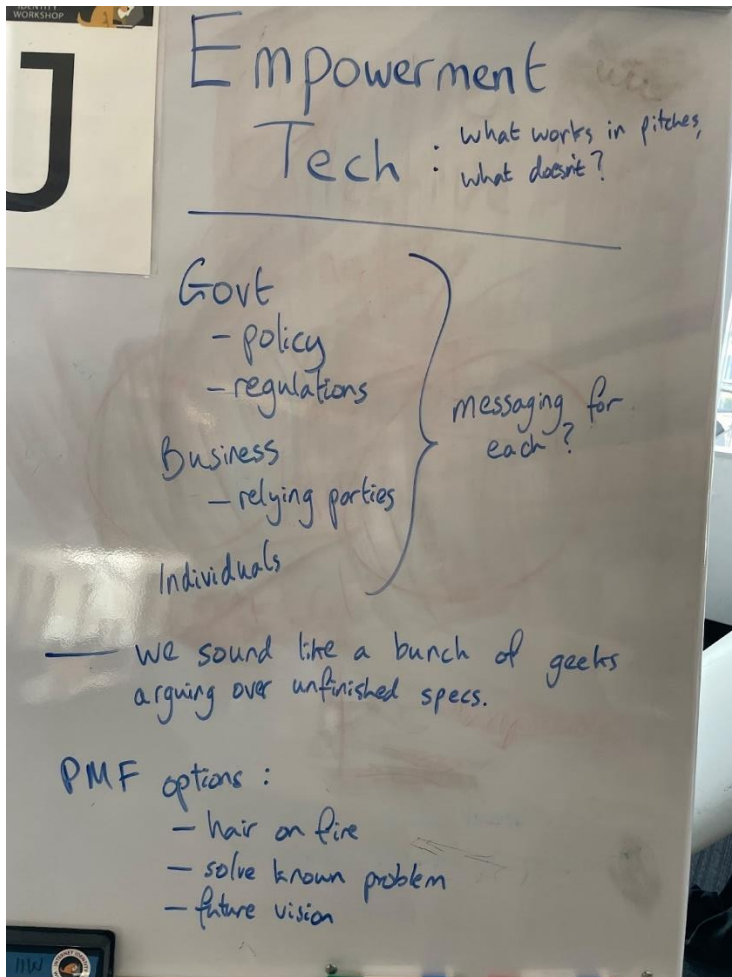 IDENTITY
WORKSHOP
J
Empowerment
Tech : what works in pitches,
what doesn't?
Govt
- policy
- regulations
Business
- relying parties
Individuals
messaging for
each?
— we sound like a bunch of geeks
arguing over unfinished specs.
PMF options :
- hair on fire
- solve known problem
- future vision
IIW
INTERNET IDENTITY